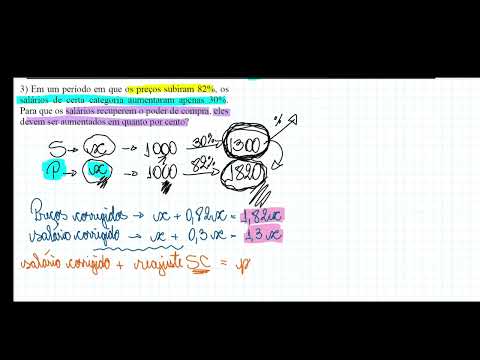 3) Em um período em que os preços subiram 82%, os
salários de certa categoria aumentaram apenas 30%.
Para que os salários recuperem o poder de compra, eles
devem ser aumentados em quanto por cento?
S → x → 1000 30% 1300 %
P → x → 1000 82% 1820
Preços corrigidos → x + 0,82x = 1,82x
salário corrigido → x + 0,3x = 1,3x
salário corrigido + reajuste SC = p